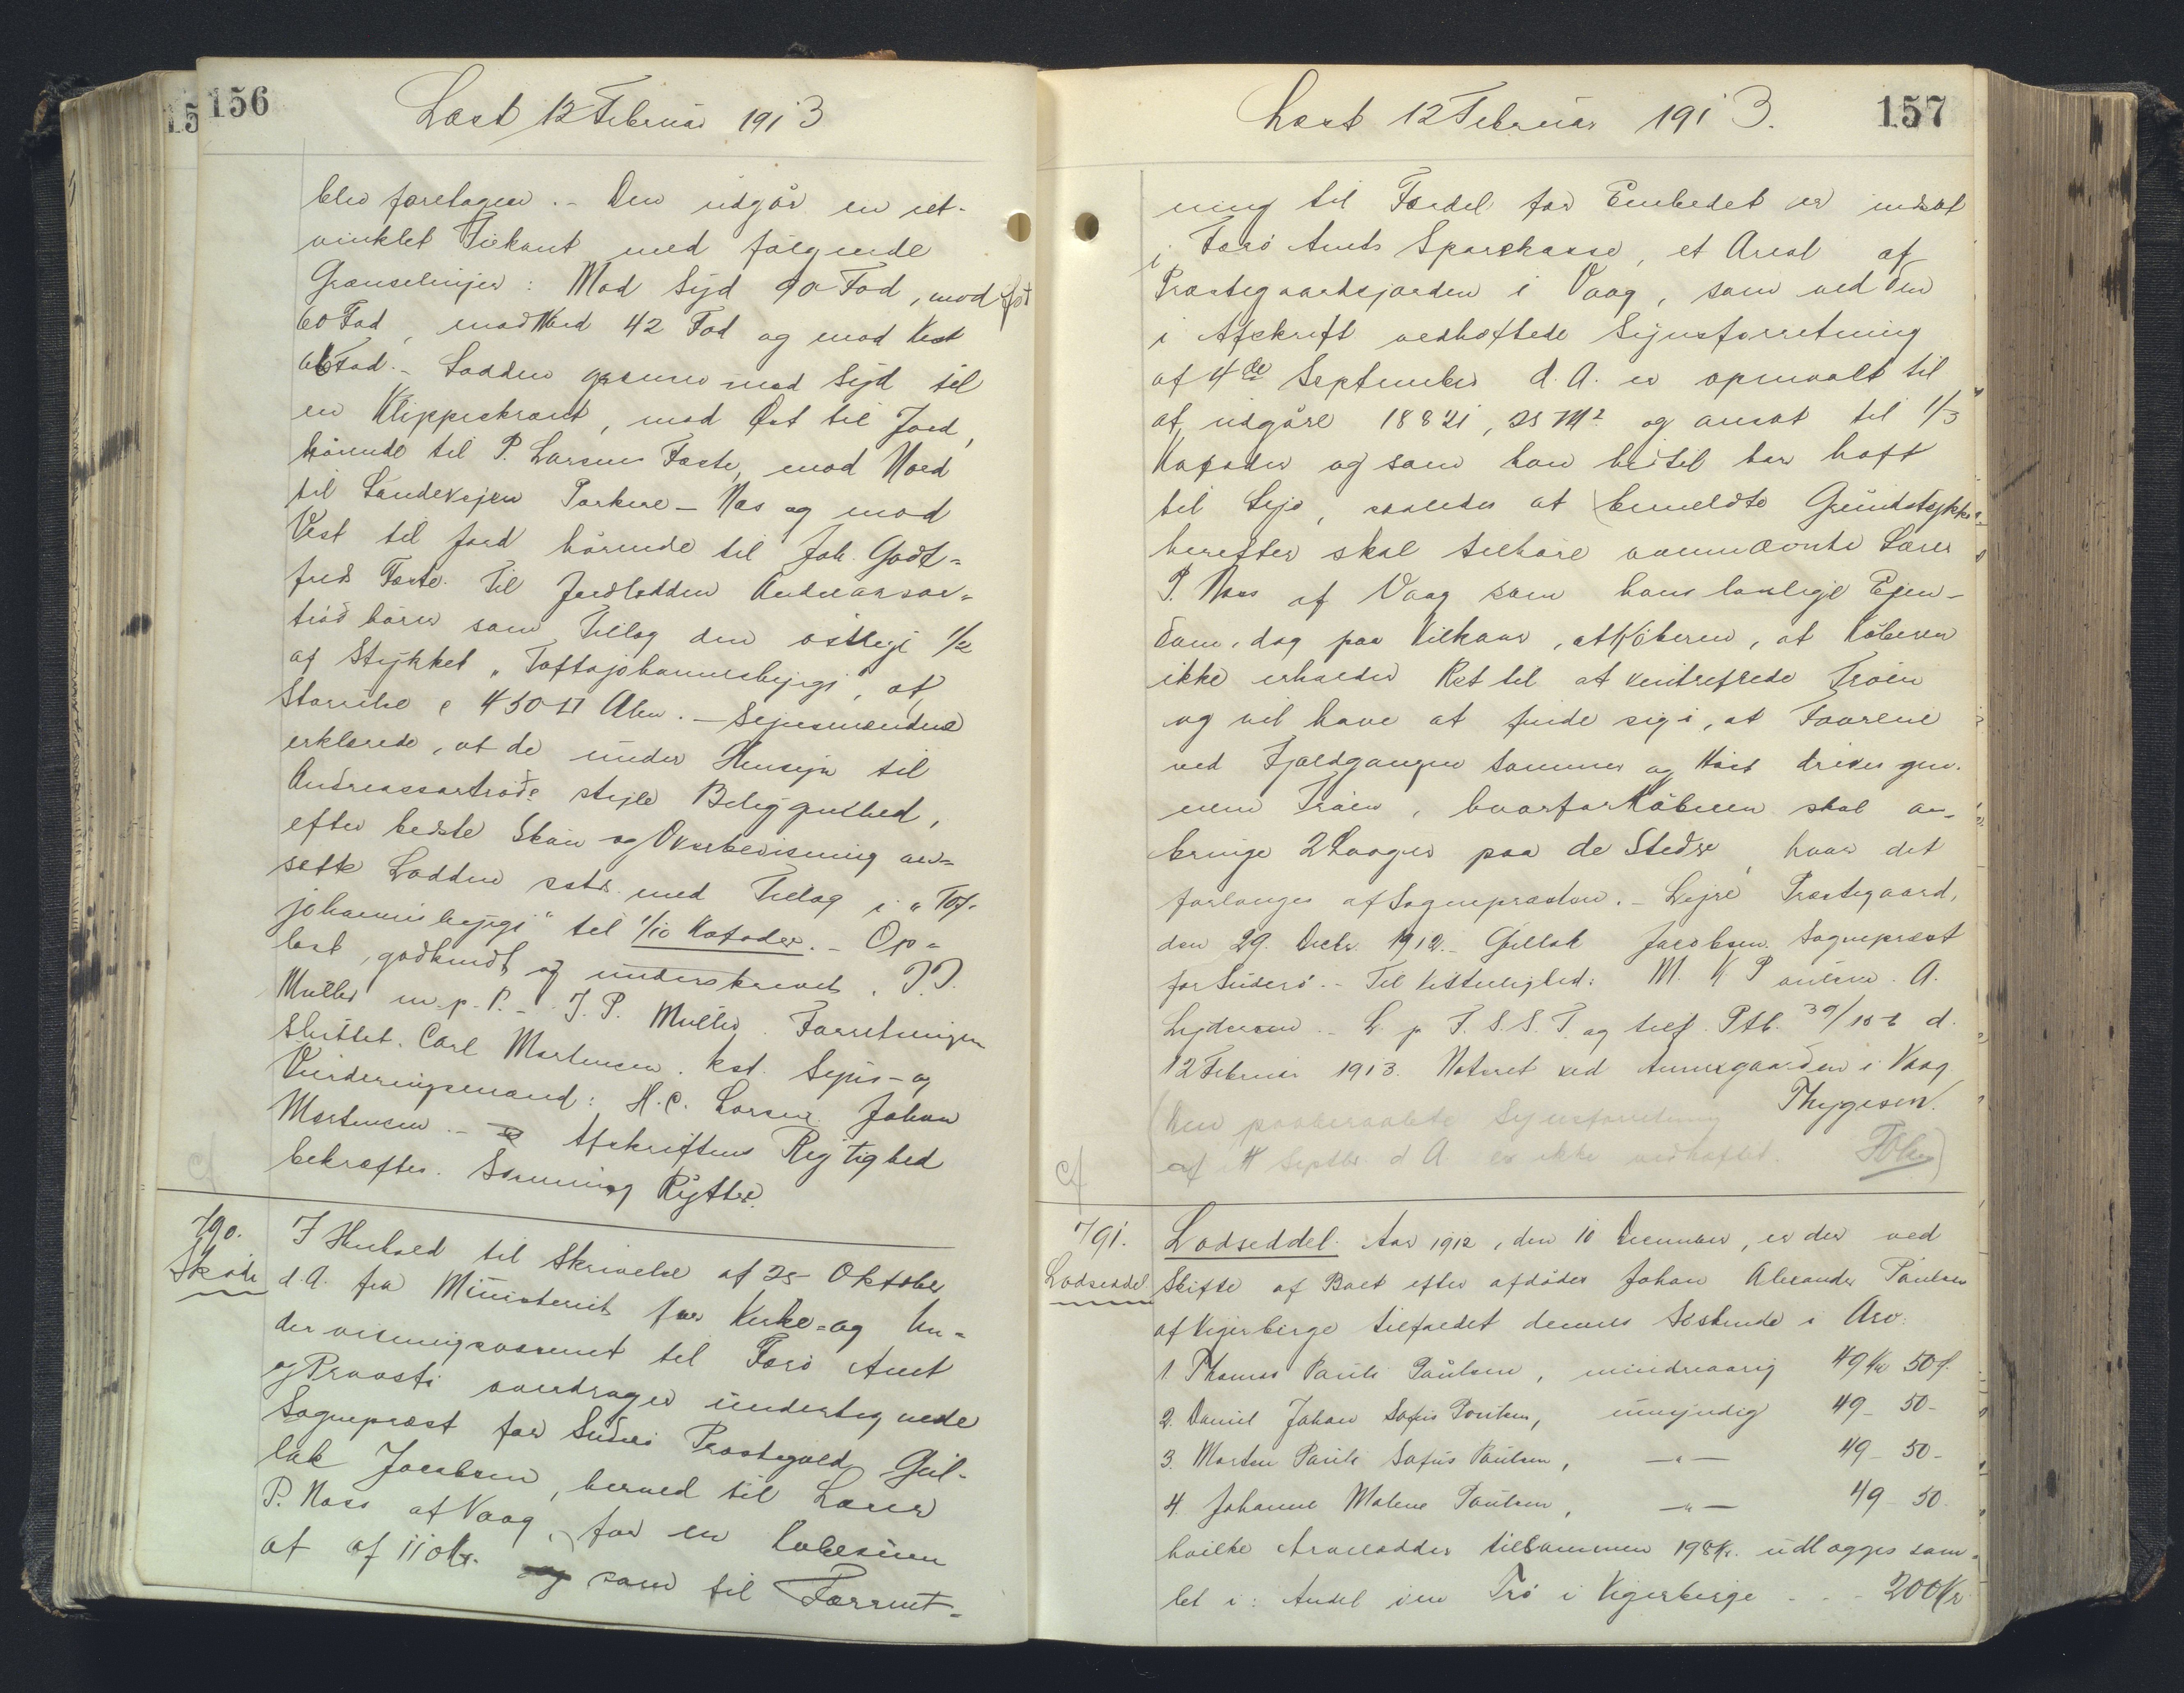 156
Læst 12 Februar 1913
blev foretagen. - Den udgør en ret-
vinklet Firkant med følgende
Grænselinjer: Mod Syd 90 Fod, mod Øst
60 Fod, mod Nord 42 Fod og mod Vest
Fod. - Lodden grænser mod Syd til
en Klippeskrænt, mod Øst til Jord,
hørende til P. Larsens Fæste, mod Nord
til Landevejen Porkere - Næs og mod
Vest til Jord hørende til Joh. Godt-
freds Fæste. Til Jordlodden Andreassar-
tröð hører som Tillæg den østlige 1/2
af Stykket "Toftajohannesbyrgi", af
Størrelse c 450 □ Alen. - Synsmændene
erklærede, at de under Hensyn til
Andreassartröðs stejle Beliggenhed,
efter bedste Skøn og Overbevisning an-
sætte Lodden satr. med Tillæg i "Tof-
johannesbyrgi" til 1/10 Kofoder. - Op-
læst, godkendt og underskrevet. J. J.
Müller m. p. P. - J. P. Müller. Forretningen
sluttet. Carl Mortensen. kst. Syns- og
Vurderingsmænd: H. C. Larsen Johan
Mortensen. - Afskriftens Rigtighed
bekræftes. Flemming Rytter.
cf
790.
Skøde
I Henhold til Skrivelse af 25 Oktober
d. A. fra Ministeriet for Kirke- og Un-
dervisningsvæsenet til Færø Amt
og Provsti overdrager undertegnede
Sognepræst for Suderø Præstegæld Gul-
lak Jacobsen, herved til Lærer
P. Næss af Vaag, for en Købesum
af af 110 Kr. som til Forrent-
157
Læst 12 Februar 1913.
ning til Fordel for Embedet er indsat
i Færø Amts Sparekasse, et Areal af
Præstegaardsjorden i Vaag, som ved den
i Afskrift vedhæftede Synsforretning
af 4de September d. A. er opmaalt til
at udgøre 18821,25 M² og ansat til 1/3
Kofoder og som han hidtil har haft
til Leje, saaledes at bemeldte Grundstykke
herefter skal tilhøre ovennævnte Lærer
P. Næss af Vaag som hans lovlige Ejen-
dom, dog paa Vilkaar, at Køberen, at Køberen
ikke erholder Ret til at vinterfrede Trøen
og vil have at finde sig i, at Faarene
ved Fjældgangen Sommer og Høst drives gen-
nem Trøen, hvorfor Køberen skal an-
bringe 2 Laager paa de Steder, hvor det
forlanges af Sognepræsten. - Præstegaard,
den 29. Decbr. 1912. - Gullak Jacobsen Sognepræst
for Suderø. - Til Vitterlighed: M. K Poulsen. A.
Lydersen. - L. p F. S. S. T. og tilf. Ptb. d.
12 Februar 1913. Noteret ved Annexgaarden i Vaag
Thygesen.
(Den paaberaabte Synsforretning
af 4 Septbr. d A er ikke vedhæftet.
cf
791.
Lodseddel
Lodseddel. Aar 1912, den 10 December, er der ved
Skifte af Boet efter afdødes Johan Alexander Poulsen
af Vigerbirge tilfaldet dennes Søskende i Arv:
1. Thomas Pauli Poulsen, mindreaarig 49 Kr 50 Ø.
2. Daniel Johan Sofus Poulsen, umyndig 49 - 50 -
3. Morten Pauli Sofus Poulsen, - " - 49 - 50 -
4. Johanne Malene Poulsen, - " - 49 - 50 -
hvilke Arvelodder tilsammen 198 Kr. udlægges sam-
let i: Andel i en Trø i Vigerbirge - - - 200 Kr